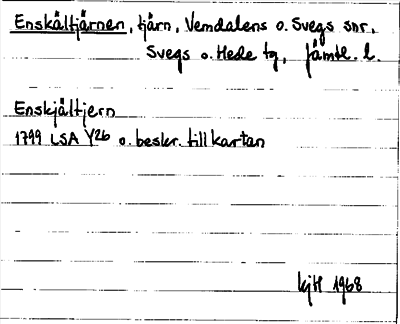 Enskåltjärnen, tjärn, Vemdalens o. Svegs snr,
Svegs o. Hede tg, Jämtl. l.
Enskjåltjern
1799 LSA Y26 o. beskr. till kartan
kjH 1968